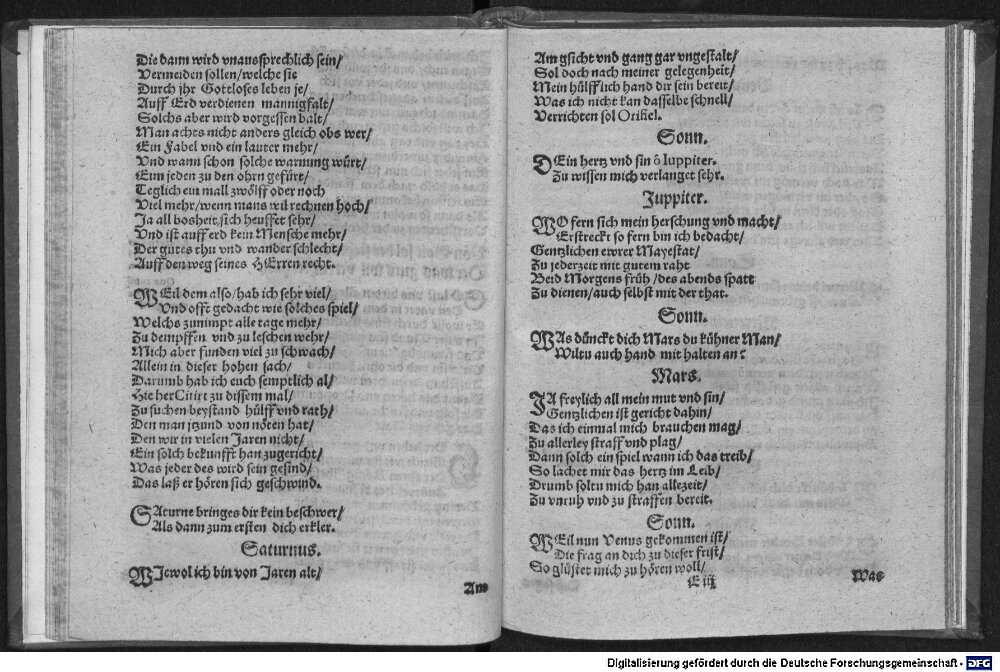 Die dann wird vnaussprechlich sein/
Vermeiden sollen/welche sie
Durch jhr Gottloses leben je/
Auff Erd verdienen mannigfalt/
Solchs aber wird vorgessen balt/
Man achts nicht anders gleich obs wer/
Ein Fabel vnd ein lauter mehr/
Vnd wann schon solche warnung würt/
Eim jeden zu den ohrn gefürt/
Teglich ein mall zwölff oder noch
Viel mehr/wenn mans wil rechnen hoch/
Ja all bosheit sich heuffet sehr/
Vnd ist auff erd kein Mensche mehr/
Der gutes thu vnd wander schlecht/
Auff den weg seines HErren recht.
WEil dem also/hab ich sehr viel/
Vnd offt gedacht wie solches spiel/
Welchs zunimpt alle tage mehr/
Zu dempffen vnd zu leschen wehr/
Mich aber funden viel zu schwach/
Allein in dieser hohen sach/
Darumb hab ich euch semptlich al/
Hie her Citirt zu dissem mal/
Zu suchen beystand hülff vnd rath/
Den man jzund von nöten hat/
Den wir in vielen Jaren nicht/
Ein solch bekunfft han zugericht/
Was jeder des wird sein gesind/
Das laß er hören sich geschwind.
SAturne bringes dir kein beschwer/
Als dann zum ersten dich erkler.
Saturnus.
WJewol ich bin von Jaren alt/
Am
Am gsicht vnd gang gar vngestalt/
Sol doch nach meiner gelegenheit/
Mein hülfflich hand dir sein bereit/
Was ich nicht kan dasselbe schnell/
Verrichten sol Orifiel.
Sonn.
DEin hertz vnd sin ô Iuppiter.
Zu wissen mich verlanget sehr.
Juppiter.
WO fern sich mein herschung vnd macht/
Erstreckt so fern bin ich bedacht/
Gentzlichen ewrer Mayestat/
Zu jederzeit mit gutem raht
Beid Morgens früh/des abends spatt
Zu dienen/auch selbst mit der that.
Sonn.
WAs dünckt dich Mars du kühner Man/
Wiltu auch hand mit halten an?
Mars.
JA freylich all mein mut vnd sin/
Gentzlichen ist gericht dahin/
Das ich einmal mich brauchen mag/
Zu allerley straff vnd plag/
Dann solch ein spiel wann ich das treib/
So lachet mir das hertz im Leib/
Drumb soltu mich han allezeit/
Zu vnruh vnd zu straffen bereit.
Sonn.
WEil nun Venus gekommen ist/
Die frag an dich zu dieser frist/
So glüstet mich zu hören woll/
E iij
Was
Digitalisierung gefördert durch die Deutsche Forschungsgemeinschaft - DFG